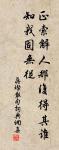 正索解人那復得其誰
知我固無從